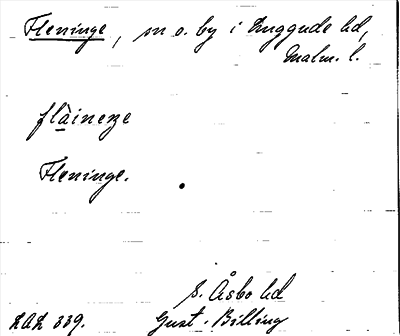 Fleninge, sn o. by i Luggude hd,
Malm. l.
flàinenze
Fleninge.
S. Åsbo hd
LAL 339. Gust. Billing